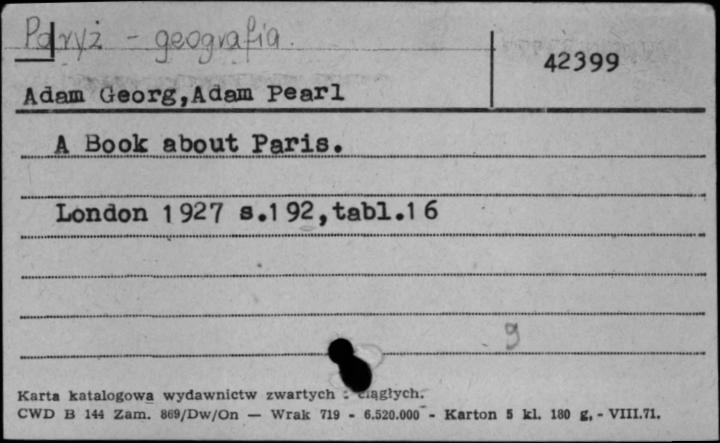 Paryż - geografia.
42399
Adam Georg,Adam Pearl
A Book about Paris.
London 1927 s.192,tabl.16
g
Karta katalogowa wydawnictw zwartych : ciągłych.
CWD B 144 Zam. 869/Dw/On — Wrak 719 - 6.520.000 - Karton 5 kl. 180 g, - VIII.71.